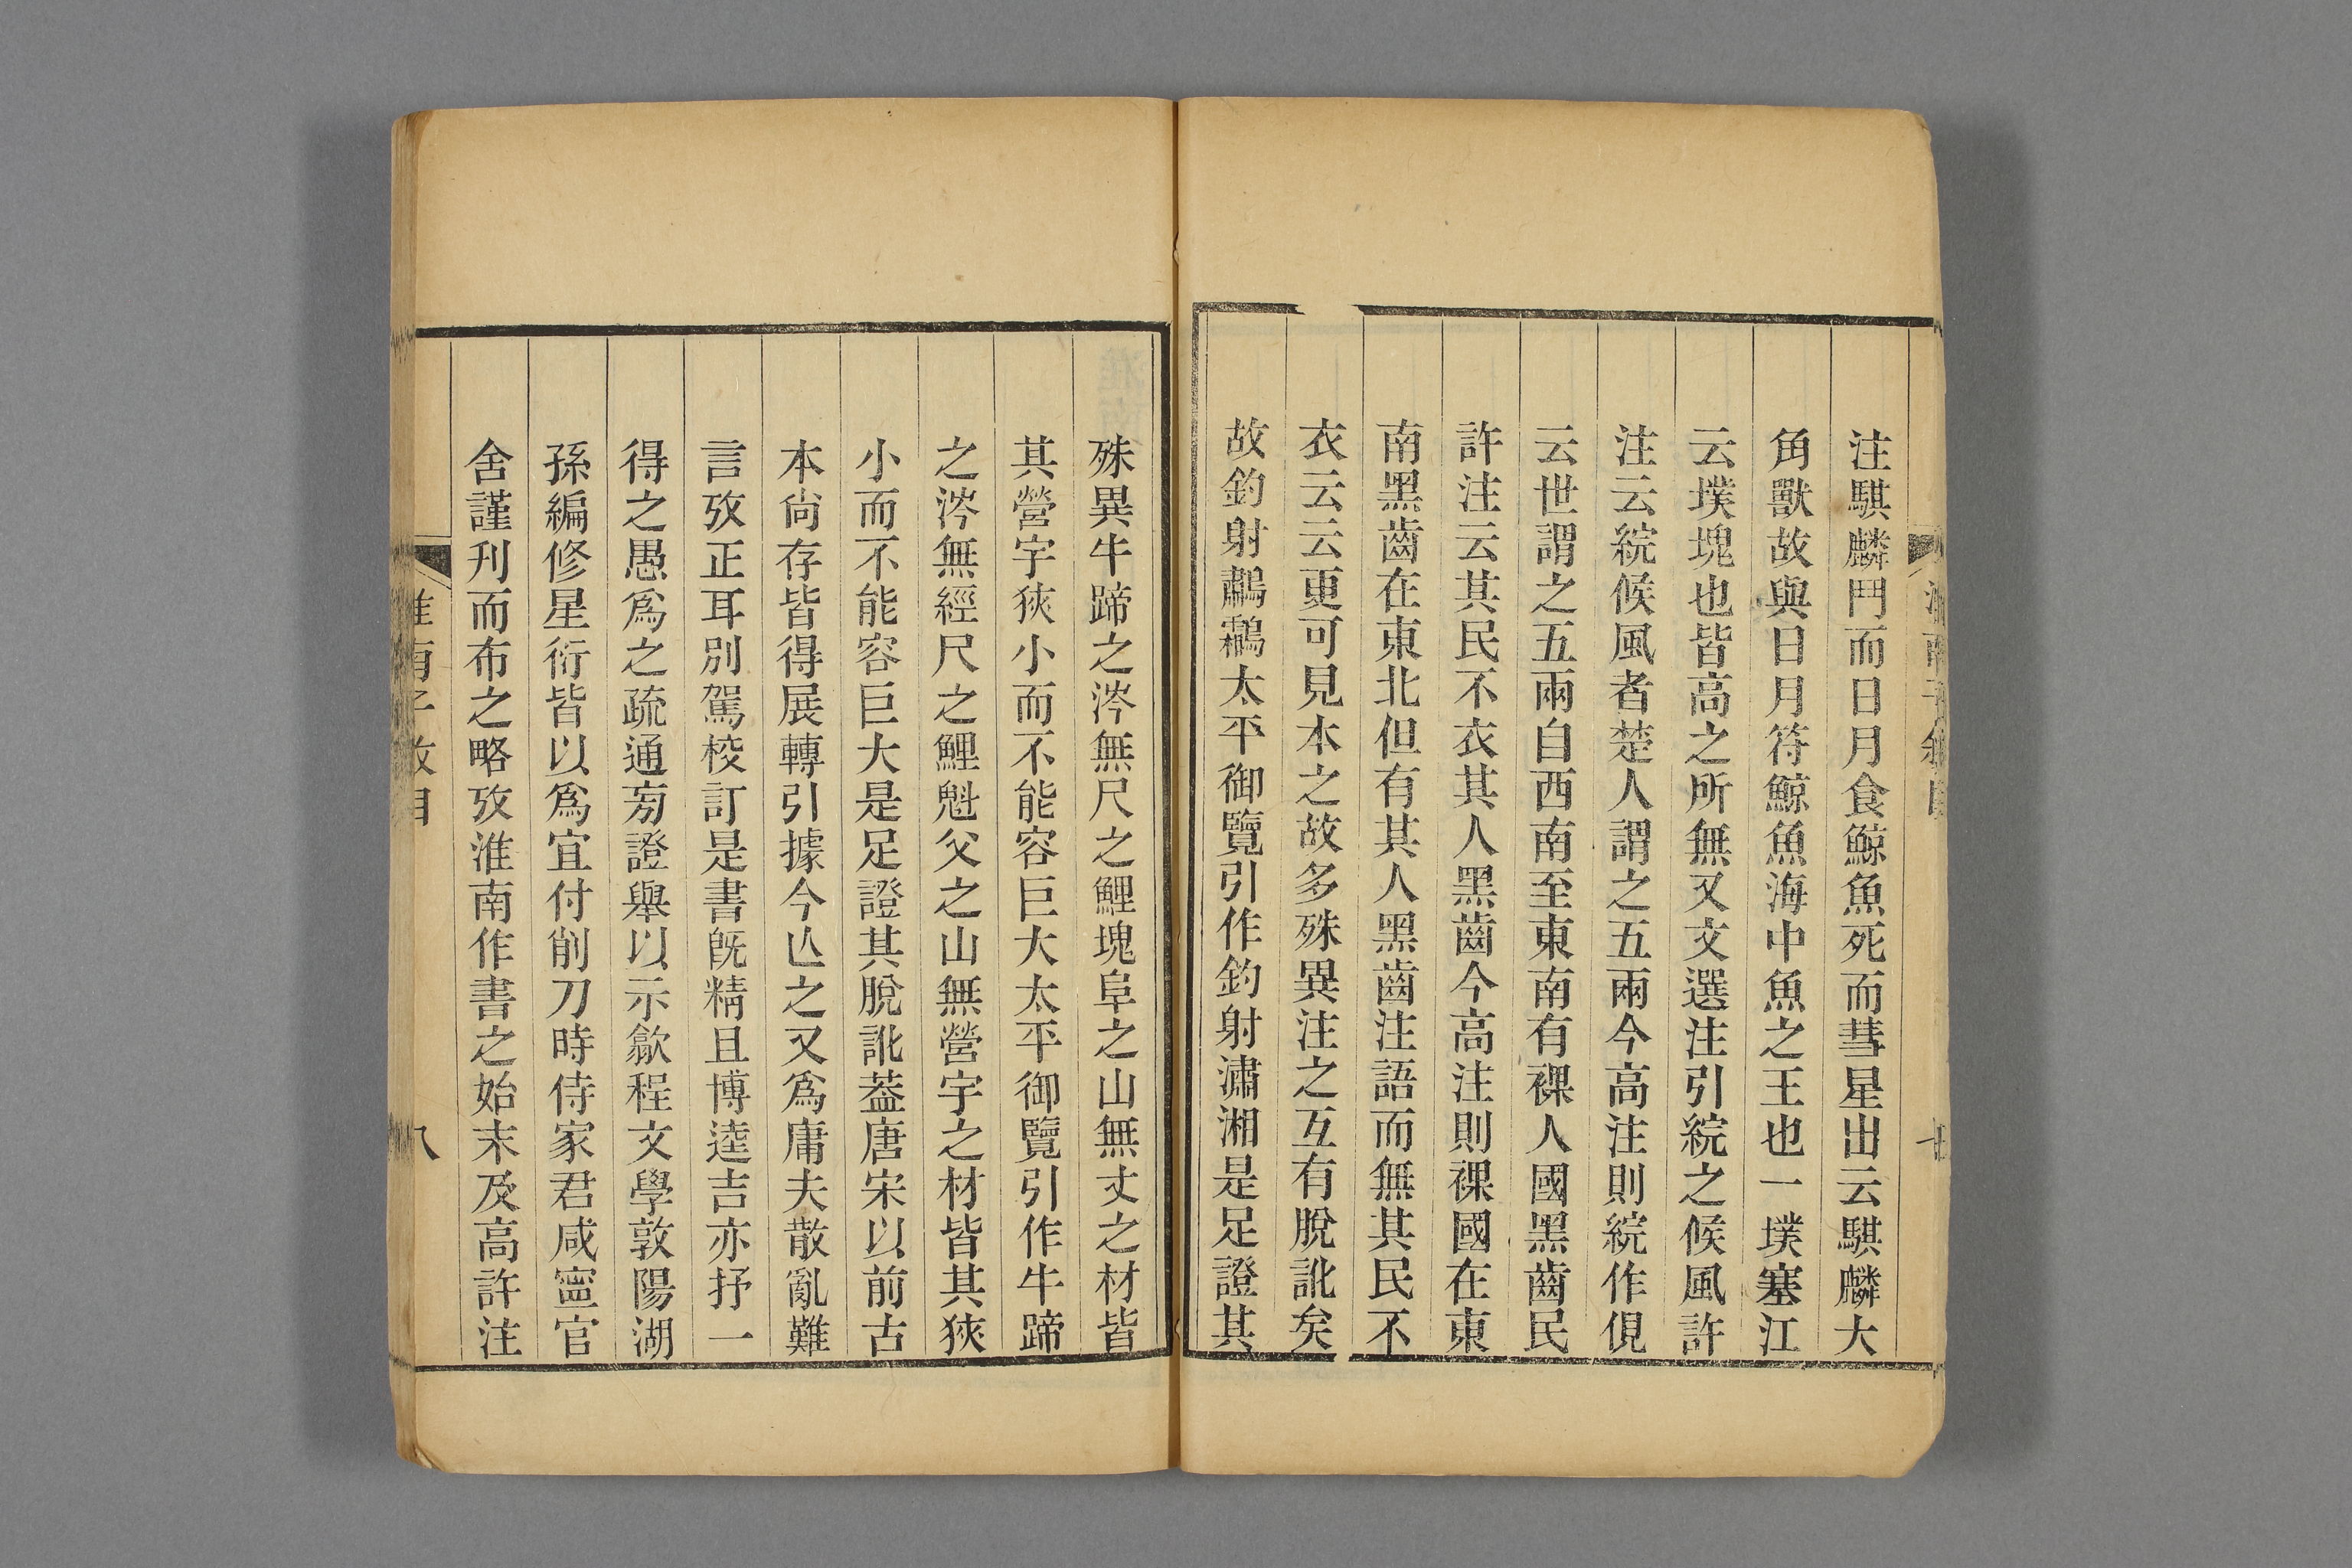 注騏麟鬥而日月食鯨魚死而彗星出云騏麟大
角獸故與日月符鯨魚海中魚之王也一墣塞江
云墣塊也皆高之所無又文選注引綄之候風許
注云綄候風者楚人謂之五兩今高注則綄作俔
云世謂之五兩自西南至東南有裸人國黑齒民
許注云其民不衣其人黑齒今高注則裸國在東
南黑齒在東北但有其人黑齒注語而無其民不
衣云云更可見本之故多殊異注之互有脫訛矣
故釣射鷫鷞太平御覽引作釣射瀟湘是足證其
殊異牛蹄之涔無尺之鯉塊阜之山無丈之材皆
其營宇狹小而不能容巨大太平御覽引作牛蹄
之涔無經尺之鯉魁父之山無營宇之材皆其狹
小而不能容巨大是足證其脫訛葢唐宋以前古
本尙存皆得展轉引據今亾之又爲庸夫散亂難
言攷正耳別駕校訂是書旣精且博逵吉亦抒一
得之愚爲之疏通㫄證舉以示歙程文學敦陽湖
孫編修星衍皆以爲宜付削刀時侍家君咸寧官
舍謹刋而布之略攷淮南作書之始末及高許注
淮南子敘目 八